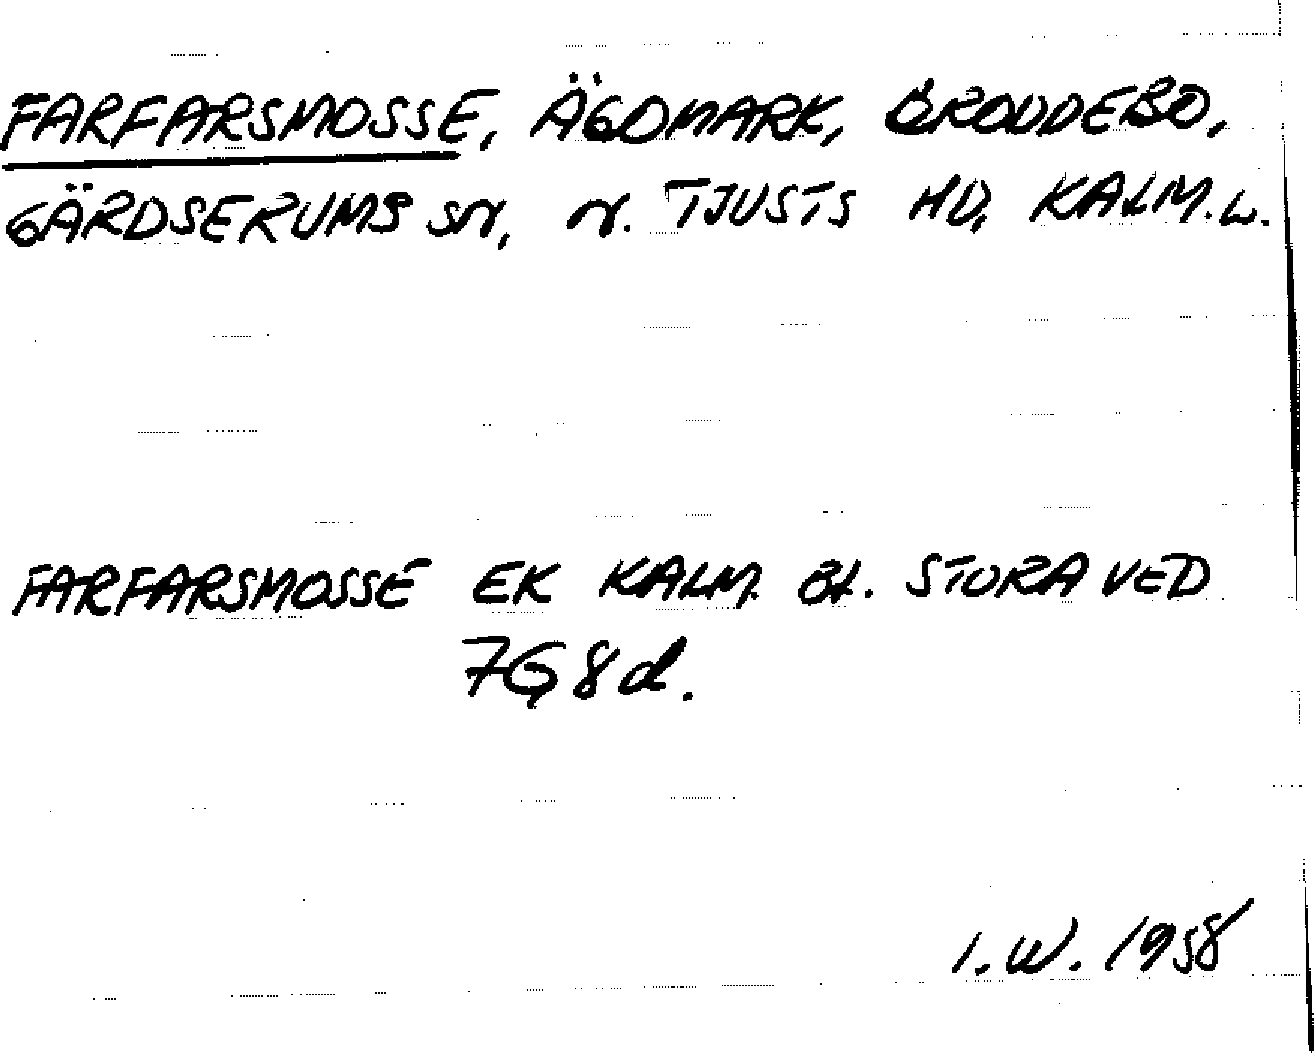 FARFARSMOSSE, ÄGOMARK, BRODDEBO,
GÄRDSERUMS SN, N. TJUSTS HD, KALM. L.
FARFARSMOSSE EK KALM. BL. STORA VED
7G 8d.
I. W. 1958